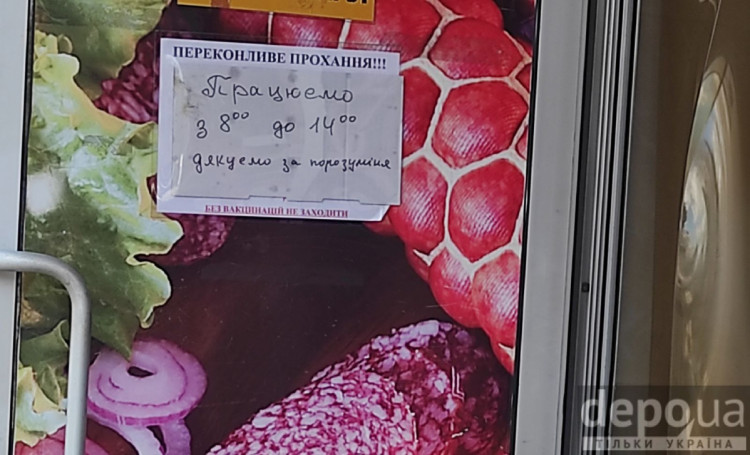 ПЕРЕКОНЛИВЕ ПРОХАННЯ!!!
Працюємо
з 8⁰⁰ до 14⁰⁰
дякуємо за порозуміня
БЕЗ ВАКЦИНАЦІЙ НЕ ЗАХОДИТИ
depo.ua
ТІЛЬКИ УКРАЇНА